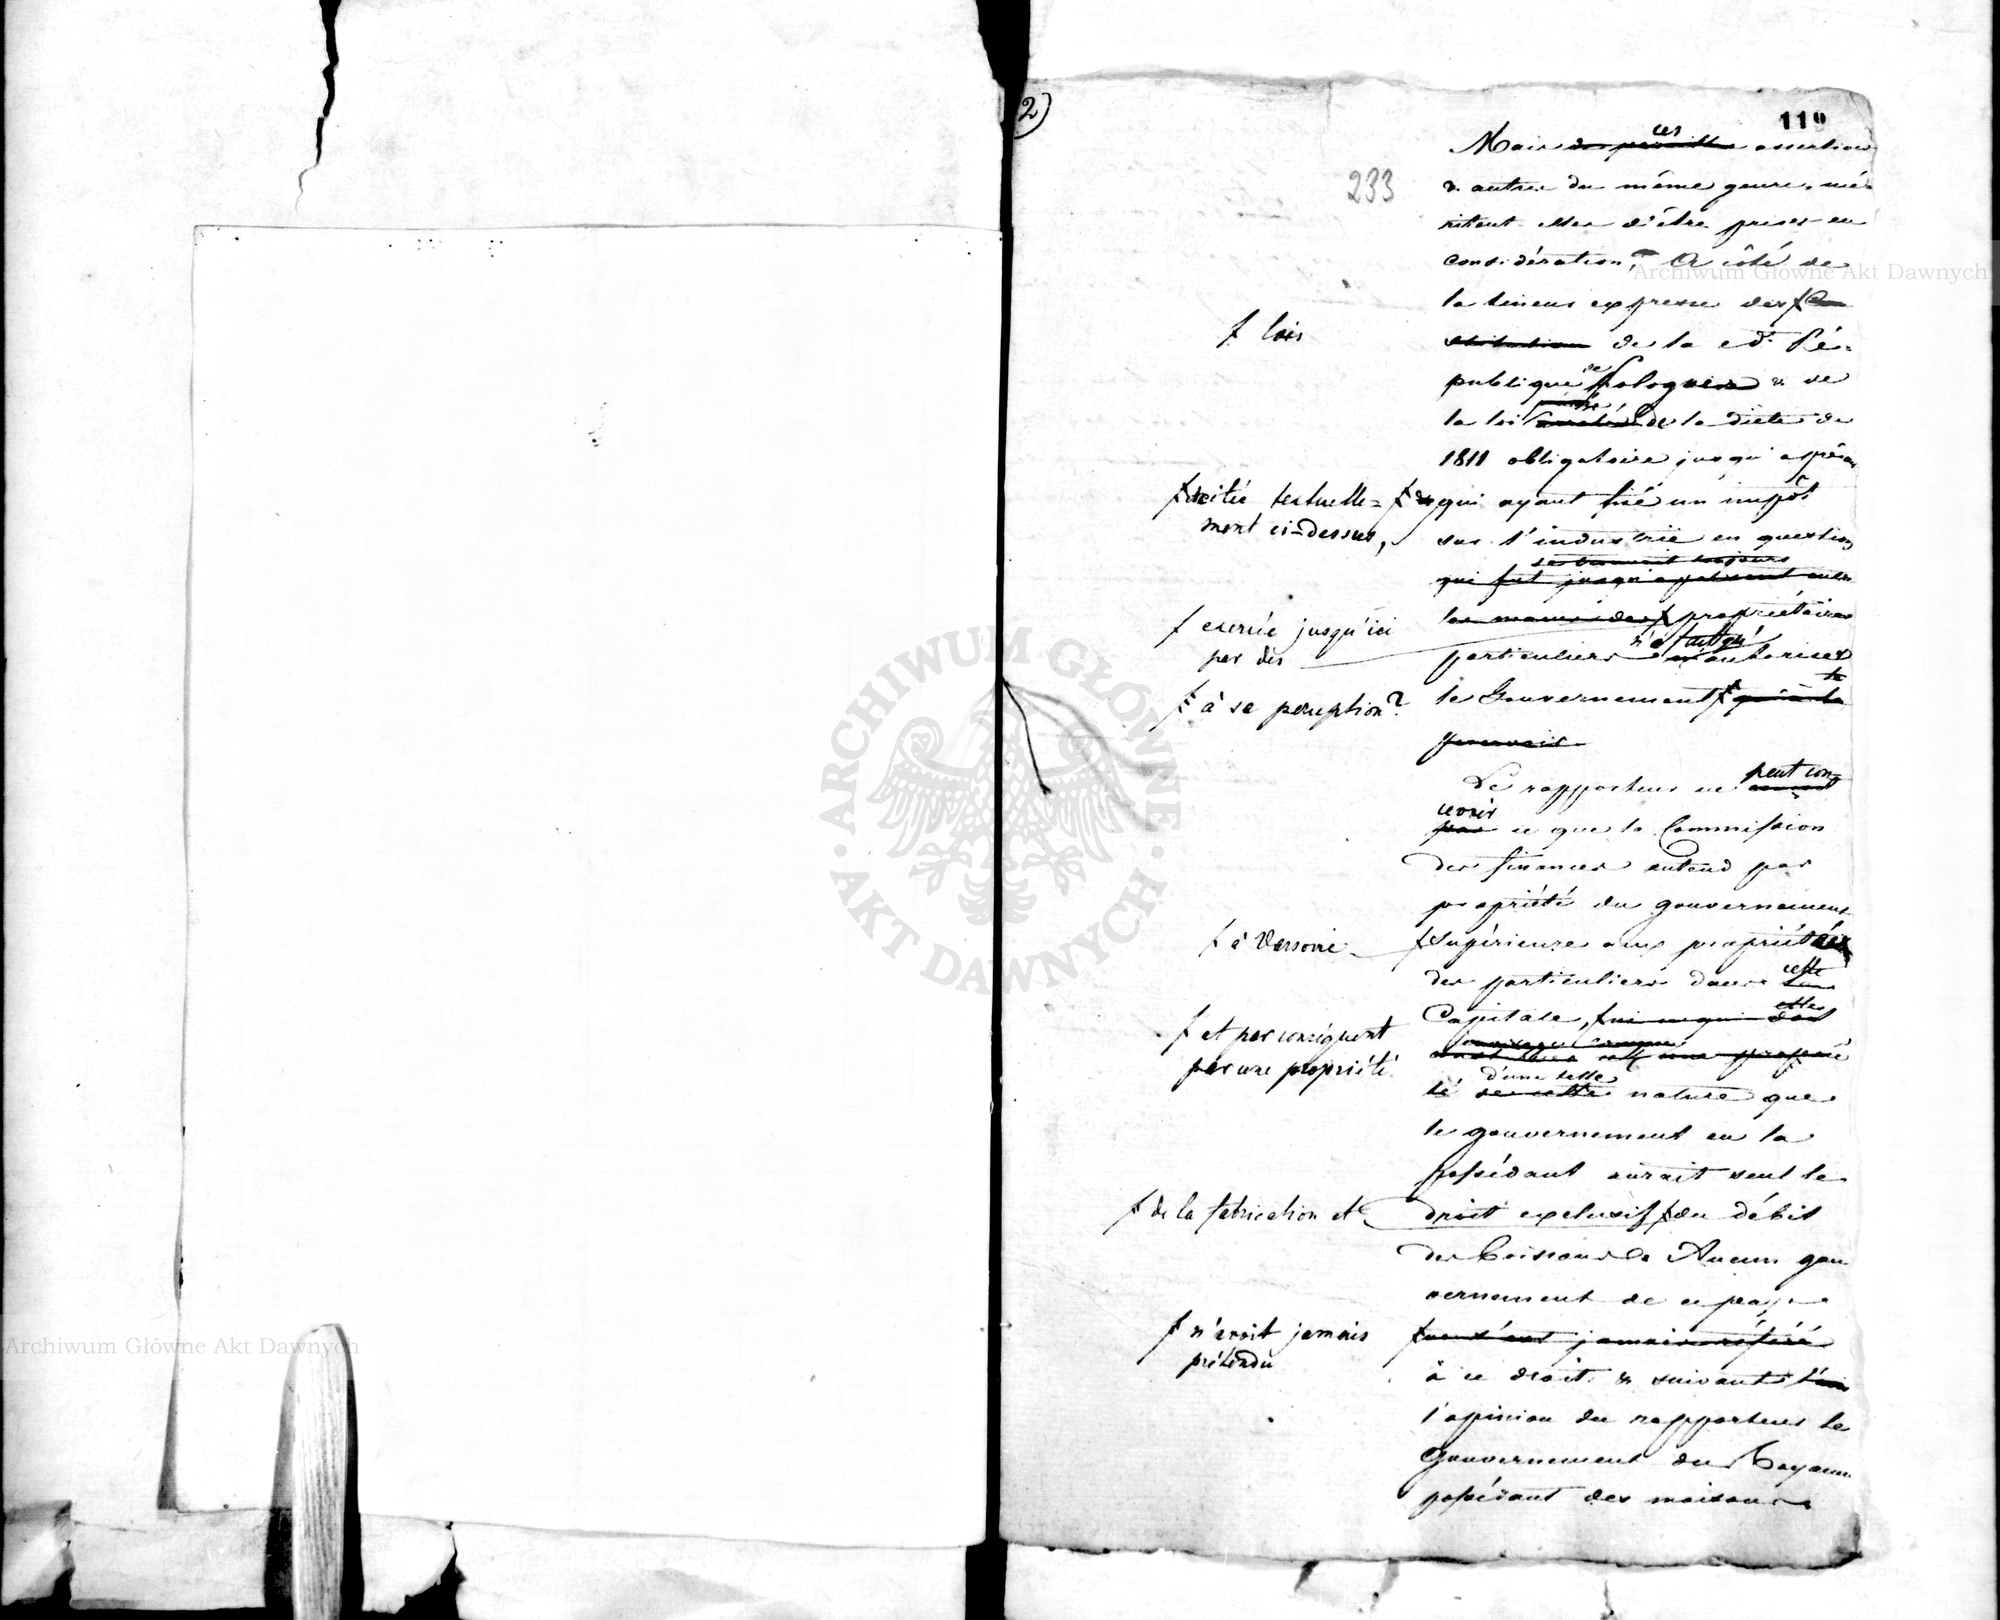 2)
119
233
Mais de pareilles ces assertions
& autres du même genre, mé-
ritent elles d'être prises en
considération? A côté de
la teneur expresse des ƒ
ƒ lois
de la cy d. Ré-
publique de Pologne & de
la loi passée de la diète de
1811 obligatoire jusqu'à présent
ƒ citée textuelle=
ment ci=dessus,
qui ayant fixé un impôt
sur l'industrie en question
se trouvait toujours
qui fut jusqu'à présent entre
les mains des ƒ propriétaires
ƒ exercée jusqu'ici
par des
particuliers n'a autorisé
le Gouvernement ƒ qu'à la
ƒ à sa perception?
percevoir
Le rapporteur ne peut con-
cevoir
pas ce que la Commission
des finances entend par
propriété du gouvernement
ƒ à Varsovie
ƒ supérieure aux propriétés
des particuliers dans cette
Capitale,
ƒ et par conséquent
par une propriété
té de cette d'une telle nature que
le gouvernement en la
possédant aurait seul le
ƒ de la fabrication et
droit exclusif ƒ du débit
des boissons. Aucun gou
vernement de ce pays
ƒ n'avoit jamais
prétendu
ne s'est jamais référé
à ce droit & suivant
l'opinion du rapporteur le
Gouvernement du Royaume
possédant des maisons
Archiwum Główne Akt Dawnych
Archiwum Główne Akt Dawnych
ARCHIWUM GŁÓWNE
AKT DAWNYCH